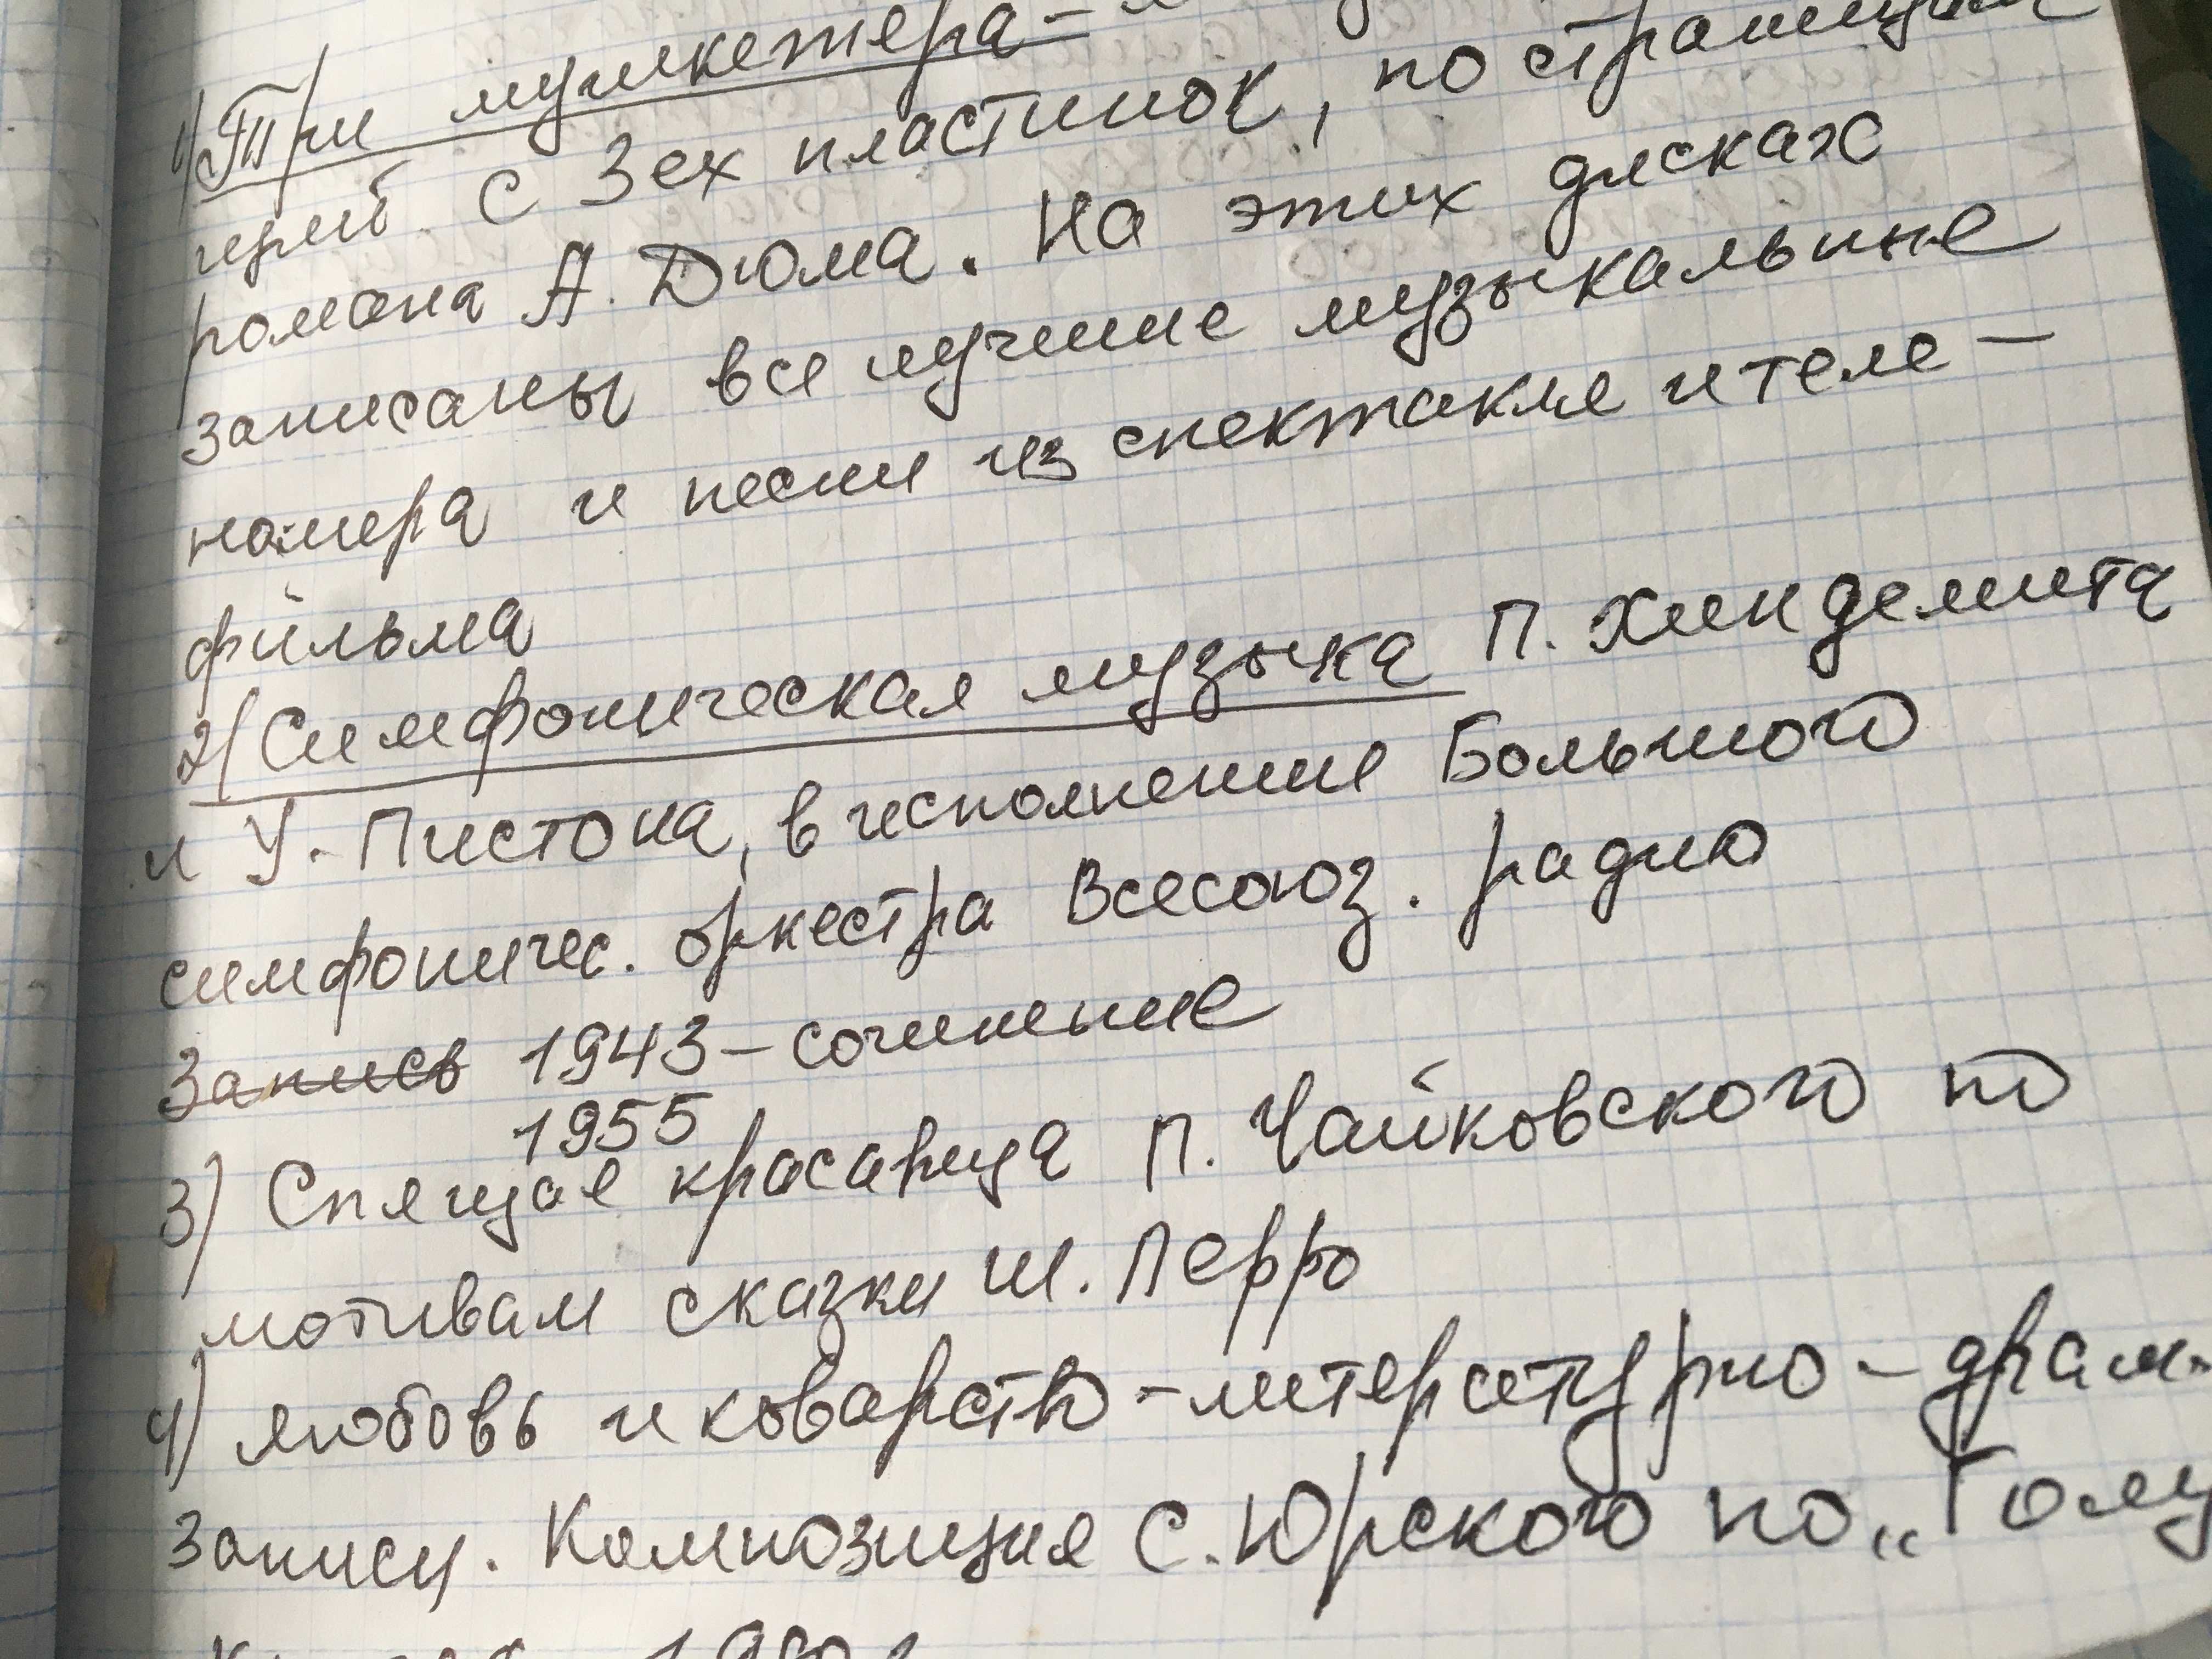 1) Три мушкетера -
с 3ех пластинок, по страницам
романа А. Дюма. На этих дисках
записаны все лучшие музыкальные
номера и песни из спектакля и теле-
фильма
2) Симфоническая музыка П. Хиндемита
и У. Пистона, в исполнении Большого
симфоничес. оркестра Всесоюз. радио
Запись 1943 - сочинение
1955
3) Спящая красавица П. Чайковского по
мотивам сказки Ш. Перро
4) Любовь и коварство - литературно-драм.
записи. Композиция С. Юрского по „Голу